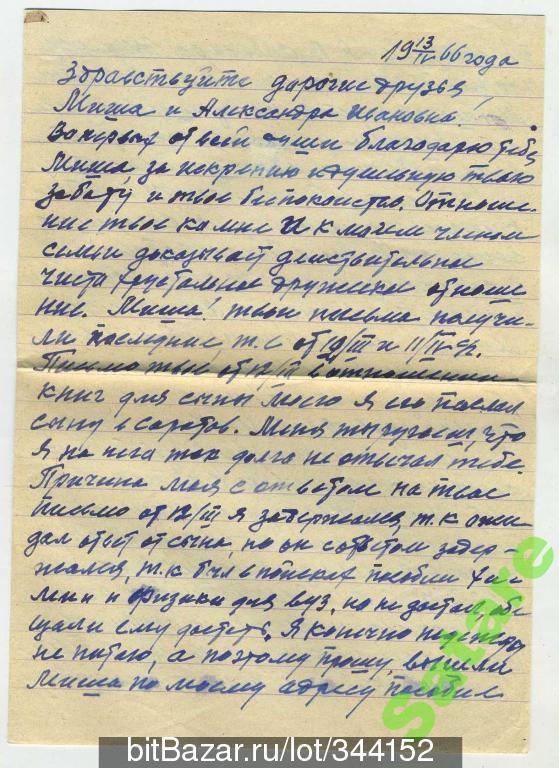 19 13/IV 66 года
Здравствуйте дорогие друзья,
Миша и Александра Ивановна!
Во первых от всей души благодарю тебя
Миша за искрению и душевную твою
заботу и твое беспокойство. Отноше-
ние твое ко мне и к моем членом
семьи доказывает действительно
чисто хрустальное дружеское отноше
ние. Миша! твои письма получи-
ли последние, т.е от 19/III и 11/IV-с/г.
Письмо твое от 12/III в отношении
книг для сына моего я его послал
сыну в Саратов. Меня ты ругаешь, что
я на него так долго не отвечал тебе.
Причина моя с ответом на твое
письмо от 12/III я задержался, т.к ожи
дал ответ от сына, но он с ответом задер-
жался, т.к был в поисках пособии
и физики для вуз, но не достал, обе
щали ему достать. Я конечно надежды
не питаю, а поэтому прошу, вышли
Миша по моему адресу пособие
Satare
bitBazar.ru/lot/344152